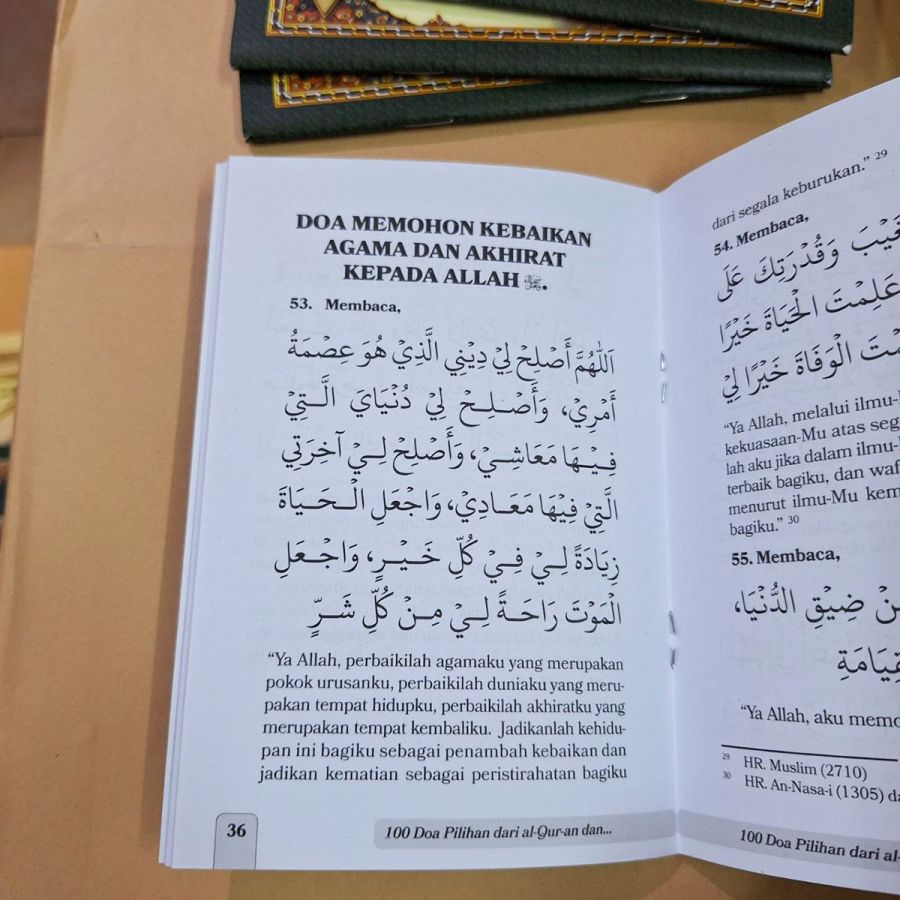 DOA MEMOHON KEBAIKAN
AGAMA DAN AKHIRAT
KEPADA ALLAH ﷻ.
53. Membaca,
اَللّٰهُمَّ أَصْلِحْ لِيْ دِيْنِي الَّذِيْ هُوَ عِصْمَةُ
أَمْرِيْ، وَأَصْلِحْ لِيْ دُنْيَايَ الَّتِيْ
فِيْهَا مَعَاشِيْ، وَأَصْلِحْ لِيْ آخِرَتِي
الَّتِيْ فِيْهَا مَعَادِيْ، وَاجْعَلِ الْحَيَاةَ
زِيَادَةً لِيْ فِيْ كُلِّ خَيْرٍ، وَاجْعَلِ
الْمَوْتَ رَاحَةً لِيْ مِنْ كُلِّ شَرٍّ
“Ya Allah, perbaikilah agamaku yang merupakan
pokok urusanku, perbaikilah duniaku yang meru-
pakan tempat hidupku, perbaikilah akhiratku yang
merupakan tempat kembaliku. Jadikanlah kehidu-
pan ini bagiku sebagai penambah kebaikan dan
jadikan kematian sebagai peristirahatan bagiku
36
100 Doa Pilihan dari al-Qur-an dan...
dari segala keburukan.” 29
54. Membaca,
وَقُدْرَتِكَ عَلَى
عَلِمْتَ الْحَيَاةَ خَيْرًا
الْوَفَاةَ خَيْرًا لِيْ
“Ya Allah, melalui ilmu-
kekuasaan-Mu atas seg
lah aku jika dalam ilmu-
terbaik bagiku, dan waf
menurut ilmu-Mu kem
bagiku.” 30
55. Membaca,
ضِيْقِ الدُّنْيَا،
“Ya Allah, aku memo
29 HR. Muslim (2710)
30 HR. An-Nasa-i (1305) da
100 Doa Pilihan dari al-